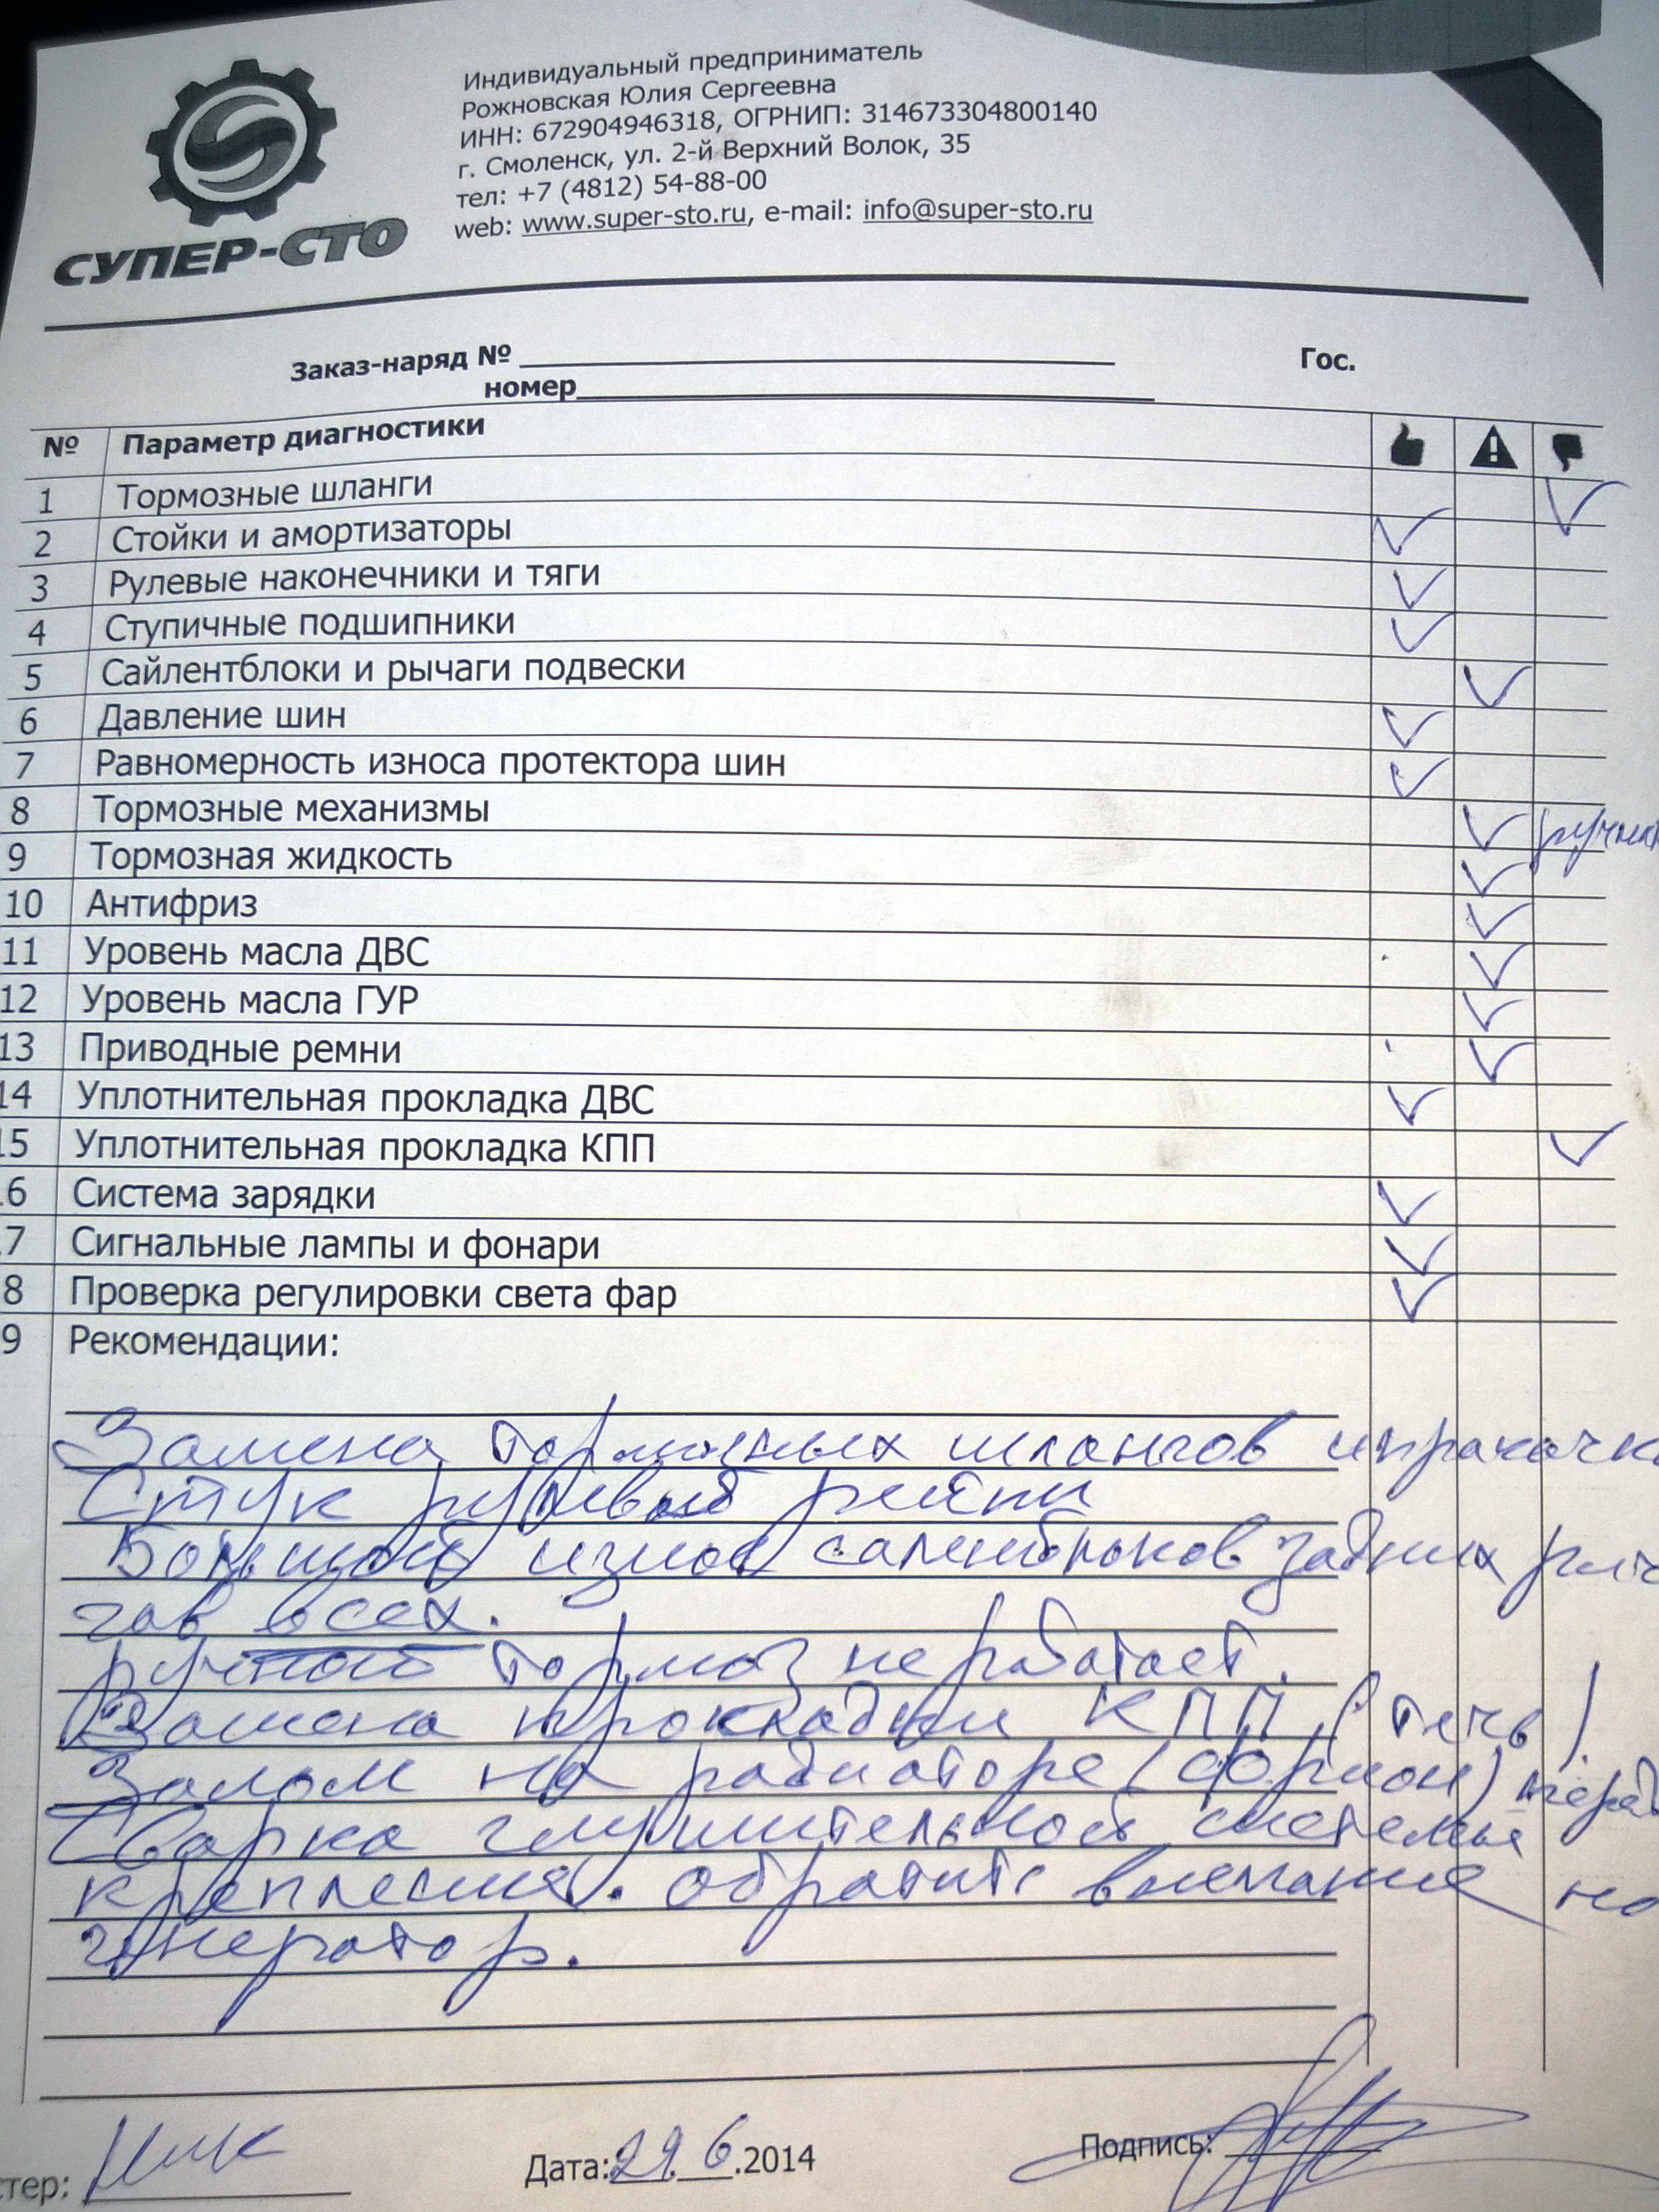 СУПЕР-СТО
Индивидуальный предприниматель
Рожновская Юлия Сергеевна
ИНН: 672904946318, ОГРНИП: 314673304800140
г. Смоленск, ул. 2-й Верхний Волок, 35
тел: +7 (4812) 54-88-00
web: www.super-sto.ru, e-mail: info@super-sto.ru
Заказ-наряд № Гос.
номер
№ Параметр диагностики
1 Тормозные шланги
2 Стойки и амортизаторы
3 Рулевые наконечники и тяги
4 Ступичные подшипники
5 Сайлентблоки и рычаги подвески
6 Давление шин
7 Равномерность износа протектора шин
8 Тормозные механизмы
9 Тормозная жидкость
10 Антифриз
11 Уровень масла ДВС
12 Уровень масла ГУР
13 Приводные ремни
14 Уплотнительная прокладка ДВС
15 Уплотнительная прокладка КПП
6 Система зарядки
7 Сигнальные лампы и фонари
8 Проверка регулировки света фар
9 Рекомендации:
Замена тормозных шлангов и прокачк
Стук рулевой рейки
Большой износ салентблоков задних рыч
гов всех.
ручной тормоз не работает.
Замена прокладки КПП (течь)
Залом на радиаторе (фрион) перед
Сварка глушительной системы
крепления. обратить внемание на
генератор.
стер: Дата: 29.6.2014 Подпись: